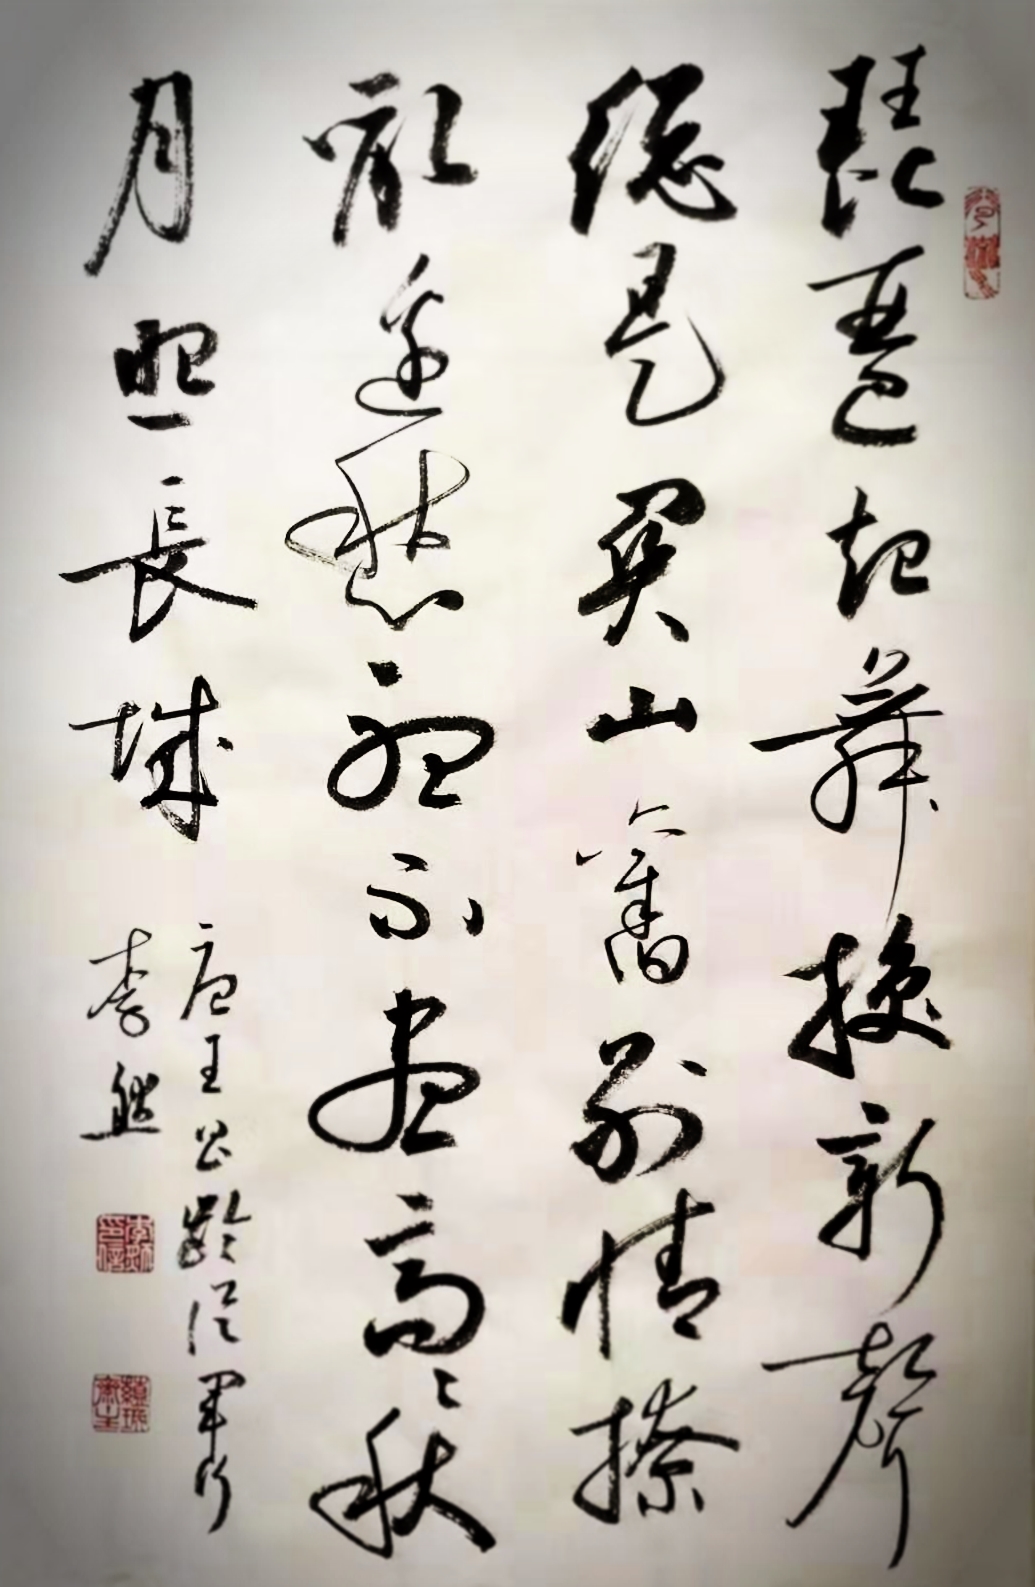 琵琶起舞換新聲
總是關山舊別情撩
亂邊愁聽不盡高々秋
月照長城
唐王昌齡從軍行
李